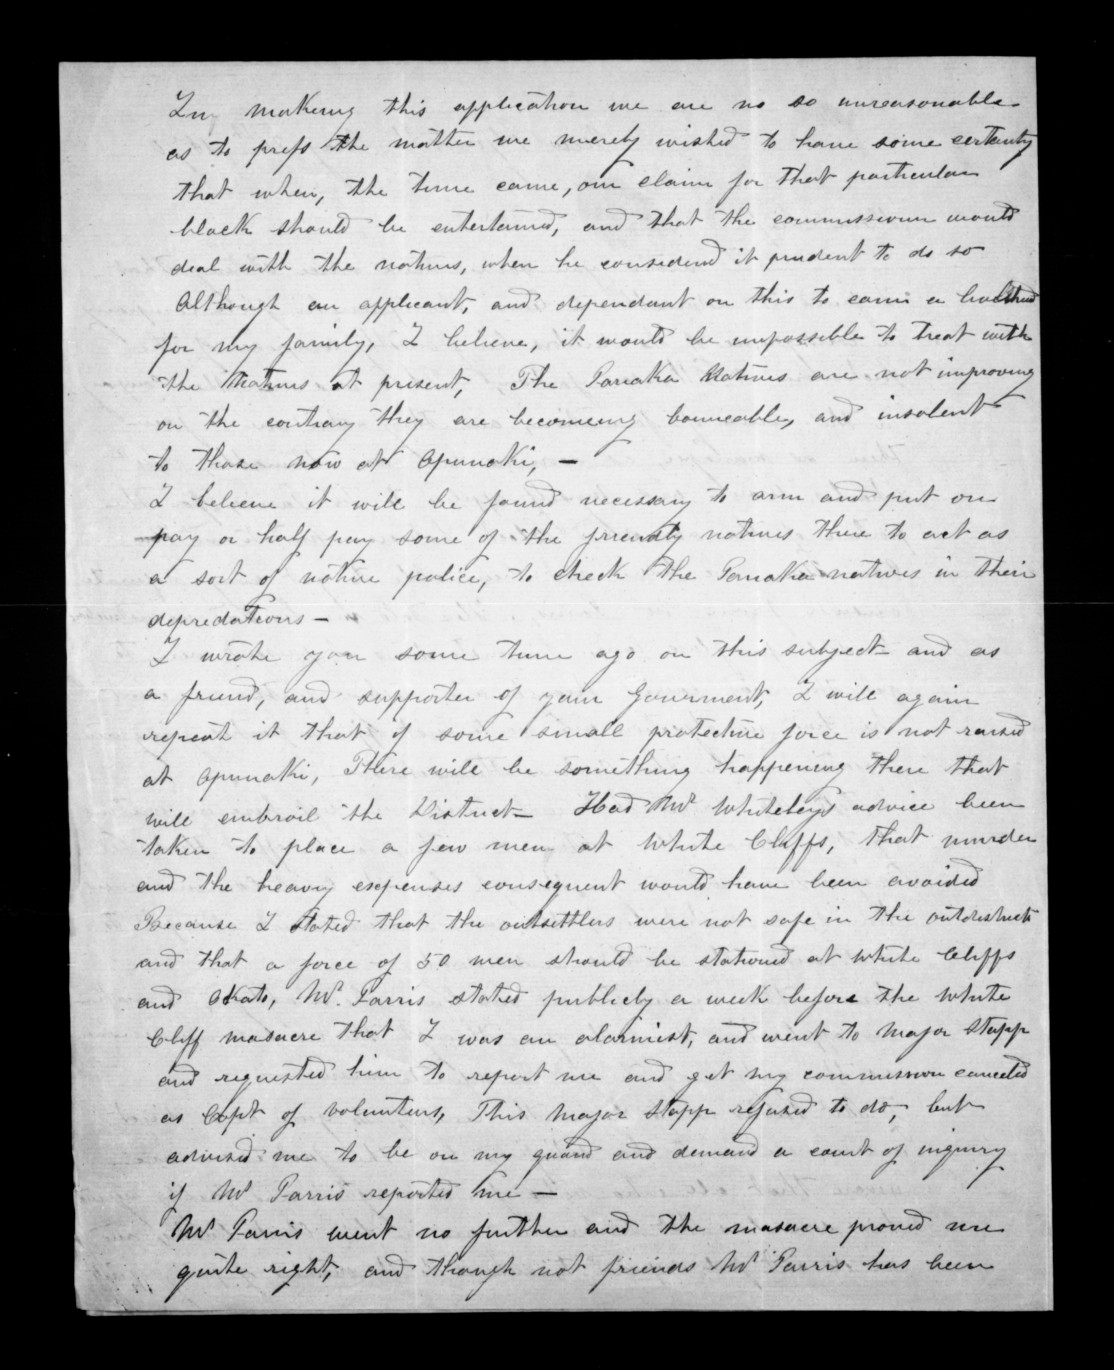 In making this application we are no so unreasonable
as to press the matter we merely wished to have some certainty
that when, the time came, our claim for that particular
block should be entertained, and that the commissioner would
deal with the natives, when he considered it prudent to do so
Although an applicant, and dependant on this to earn a livelihood
for my family, I believe, it would be impossible to treat with
the Natives at present, The Pariaka Natives are not improving
on the contrary they are becoming bounceable, and insolent
to those now at Opunaki, —
I believe it will be found necessary to arm and put on
pay or half pay some of the friendly natives there to act as
a sort of native police, to check the Pariaka natives in their
depredations —
I wrote you some time ago on this subject and as
a friend, and supporter of your Goverment, I will again
repeat it that if some small protective force is not raised
at Opunaki, There will be something happening there that
will embroil the District — Had Mr Whiteleys advice been
taken to place a few men at White Cliffs, that murder
and the heavy expenses consequent would have been avoided
Because I stated that the outsettlers were not safe in the outdistricts
and that a force of 50 men should be stationed at White Cliffs
and Okato, Mr. Parris stated publicly a week before the White
Cliff masacre that I was an alarmist, and went to Major Stapp
and requested him to report me and get my commission canceled
as Capt of Volunteers, This Major Stapp refused to do, but
advised me to be on my guard and demand a court of inquiry
if Mr Parris reported me —
Mr Parris went no further and the masacre proved me
quite right, and though not friends Mr Parris has been